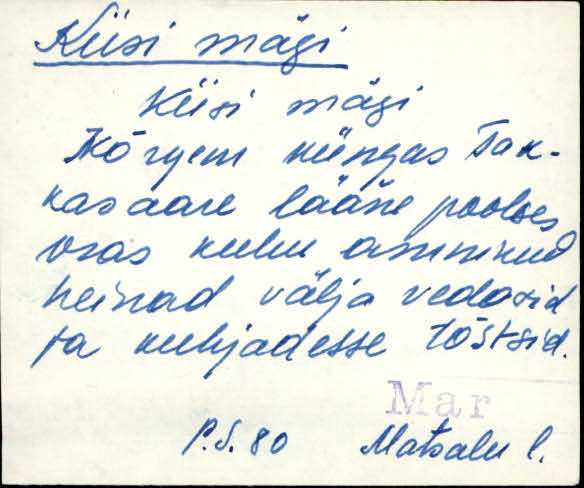 Kiisi mägi
Kiisi mägi
Kõrgem küngas Tak-
kasaare lääne poolses
osas kuhu ammikud
heinad välja vedasid
ja kuhjadesse tõstsid.
Mar
P.S. 80 Matsalu l.